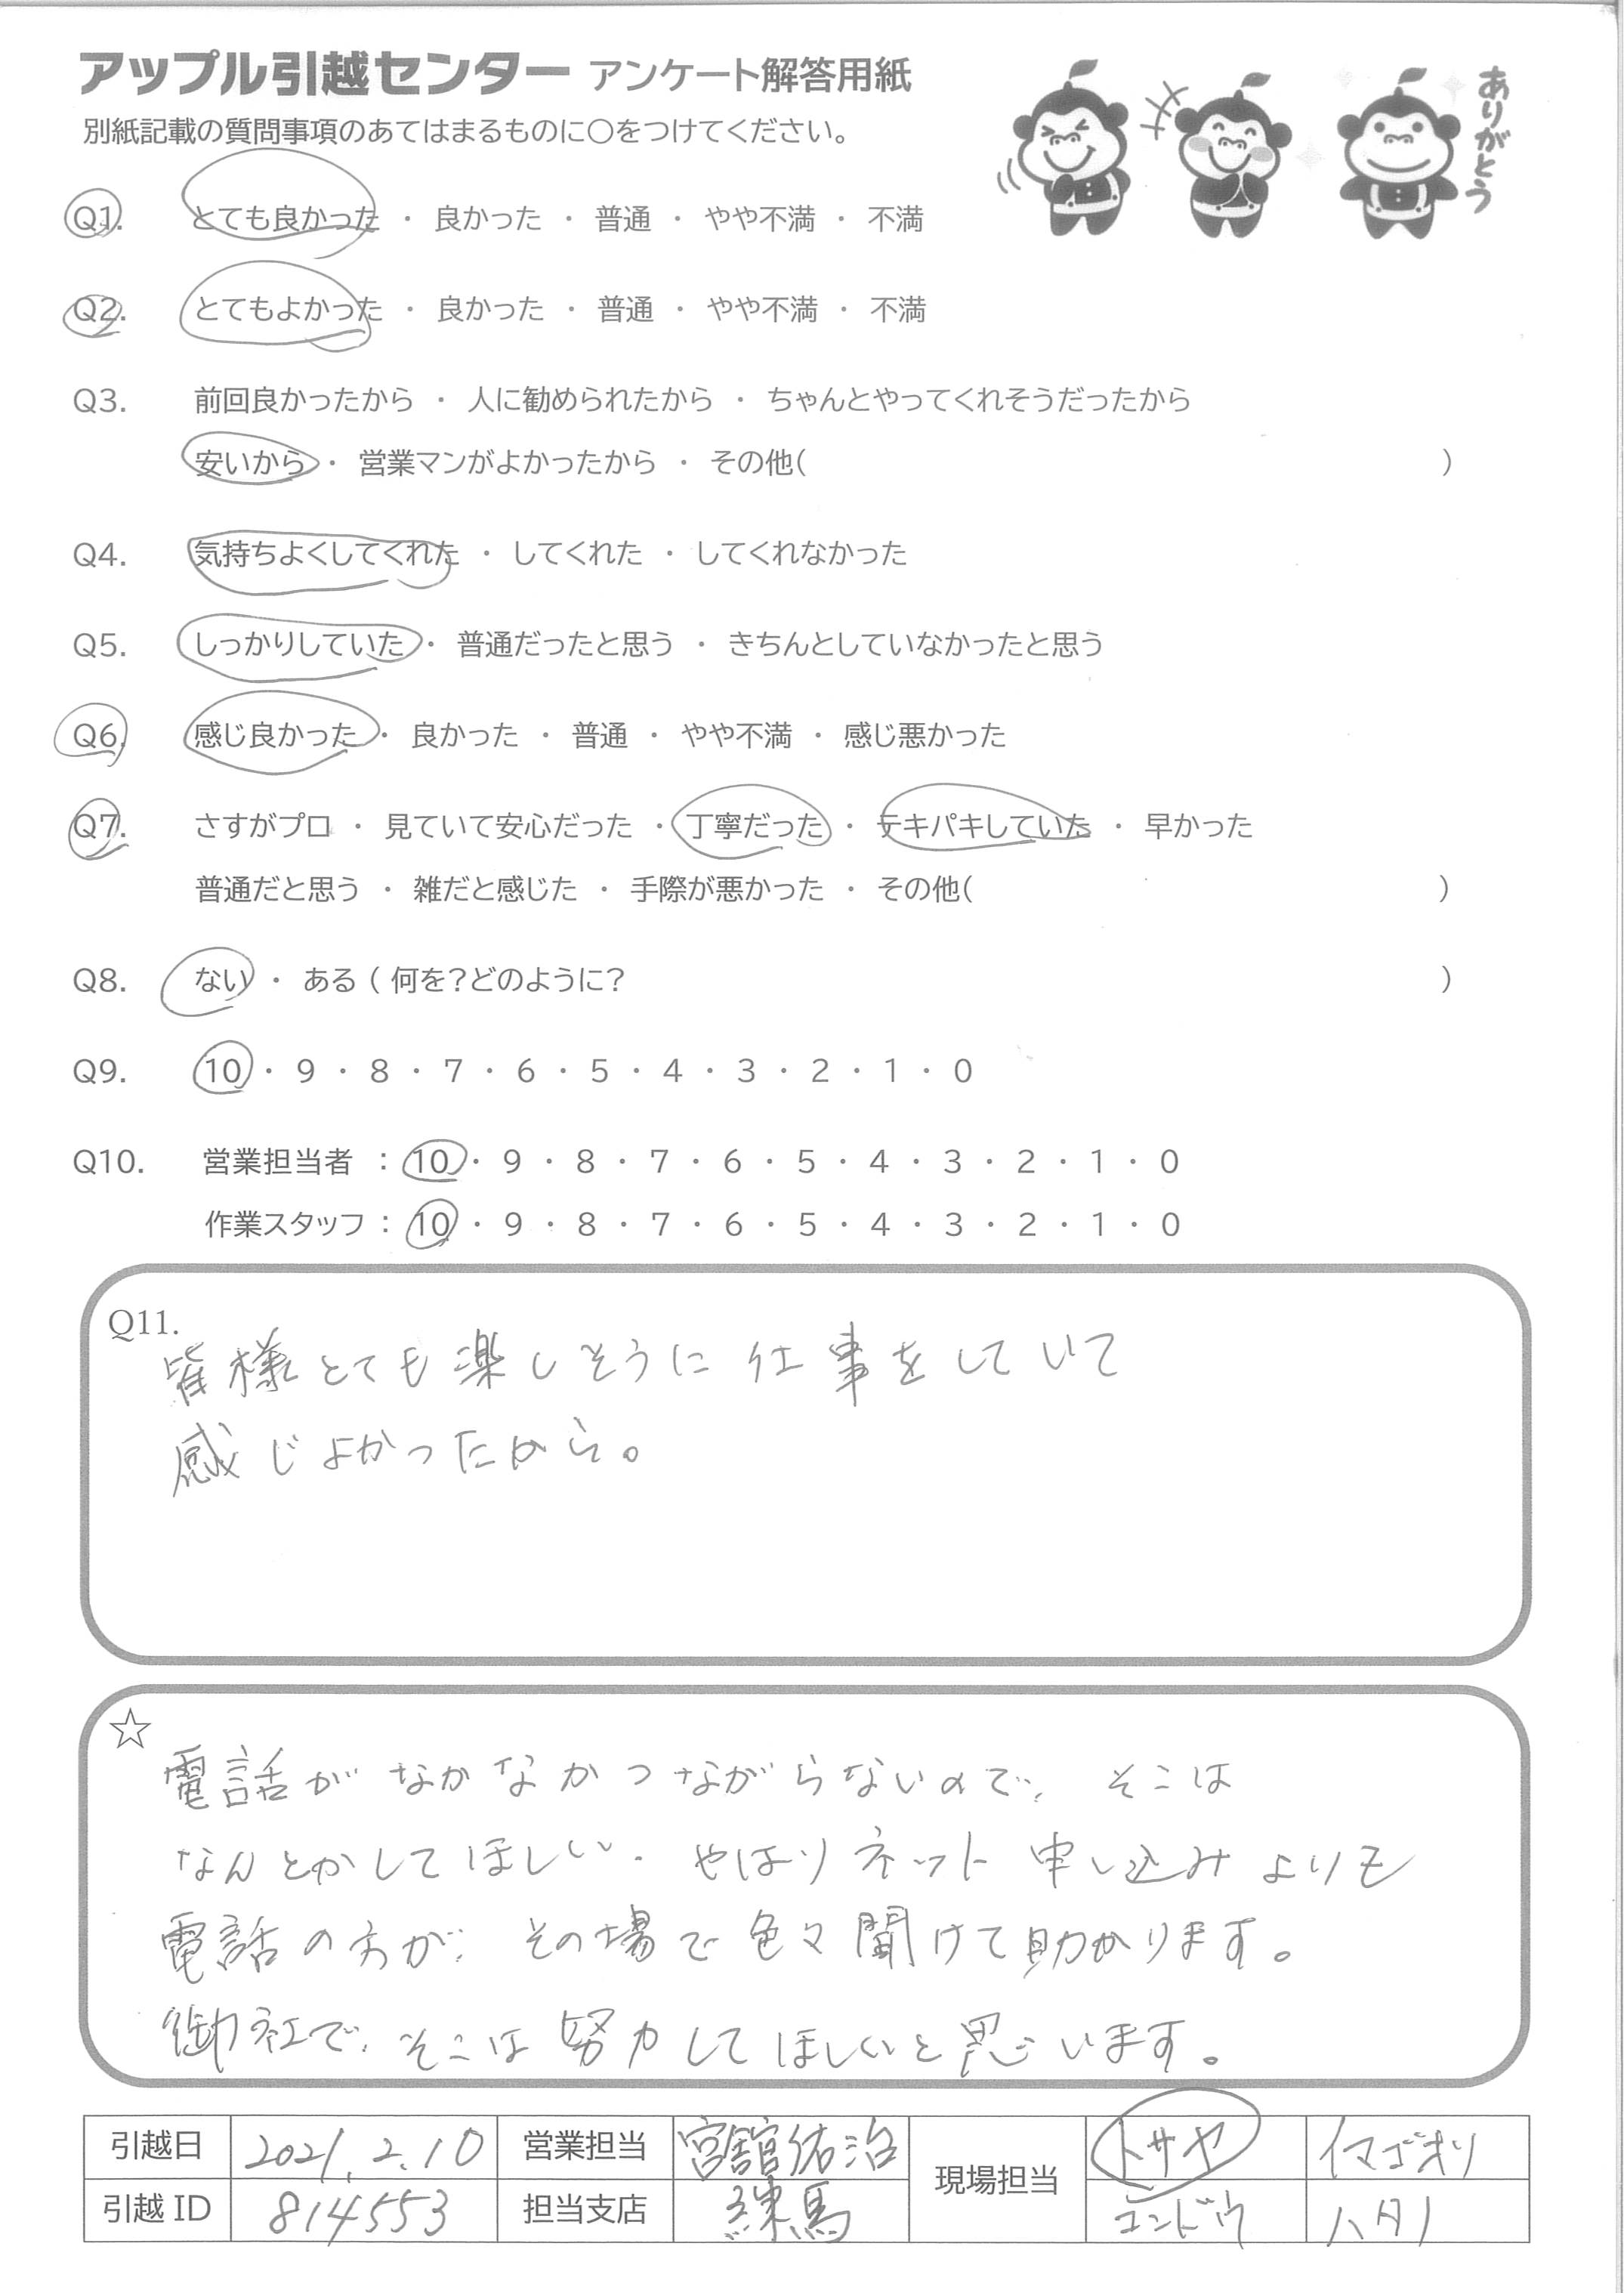 アップル引越センター アンケート解答用紙
ありがとう
別紙記載の質問事項のあてはまるものに○をつけてください。
Q1. とても良かった ・ 良かった ・ 普通 ・ やや不満 ・ 不満
Q2. とてもよかった ・ 良かった ・ 普通 ・ やや不満 ・ 不満
Q3. 前回良かったから ・ 人に勧められたから ・ ちゃんとやってくれそうだったから
安いから ・ 営業マンがよかったから ・ その他( )
Q4. 気持ちよくしてくれた ・ してくれた ・ してくれなかった
Q5. しっかりしていた ・ 普通だったと思う ・ きちんとしていなかったと思う
Q6. 感じ良かった ・ 良かった ・ 普通 ・ やや不満 ・ 感じ悪かった
Q7. さすがプロ ・ 見ていて安心だった ・ 丁寧だった ・ テキパキしていた ・ 早かった
普通だと思う ・ 雑だと感じた ・ 手際が悪かった ・ その他( )
Q8. ない ・ ある ( 何を?どのように? )
Q9. 10 ・ 9 ・ 8 ・ 7 ・ 6 ・ 5 ・ 4 ・ 3 ・ 2 ・ 1 ・ 0
Q10. 営業担当者 : 10 ・ 9 ・ 8 ・ 7 ・ 6 ・ 5 ・ 4 ・ 3 ・ 2 ・ 1 ・ 0
作業スタッフ : 10 ・ 9 ・ 8 ・ 7 ・ 6 ・ 5 ・ 4 ・ 3 ・ 2 ・ 1 ・ 0
Q11.
皆様とても楽しそうに仕事をしていて
感じよかったから。
☆
電話がなかなかつながらないので、そこは
なんとかしてほしい. やはりネット申し込みよりも
電話の方が、その場で色々聞けて助かります。
御社で、そこは努力してほしいと思います。
引越日 2021.2.10 営業担当 宮舘佑治 現場担当 トサヤ イマゴオリ
引越 ID 814553 担当支店 練馬 コンドウ ハタノ